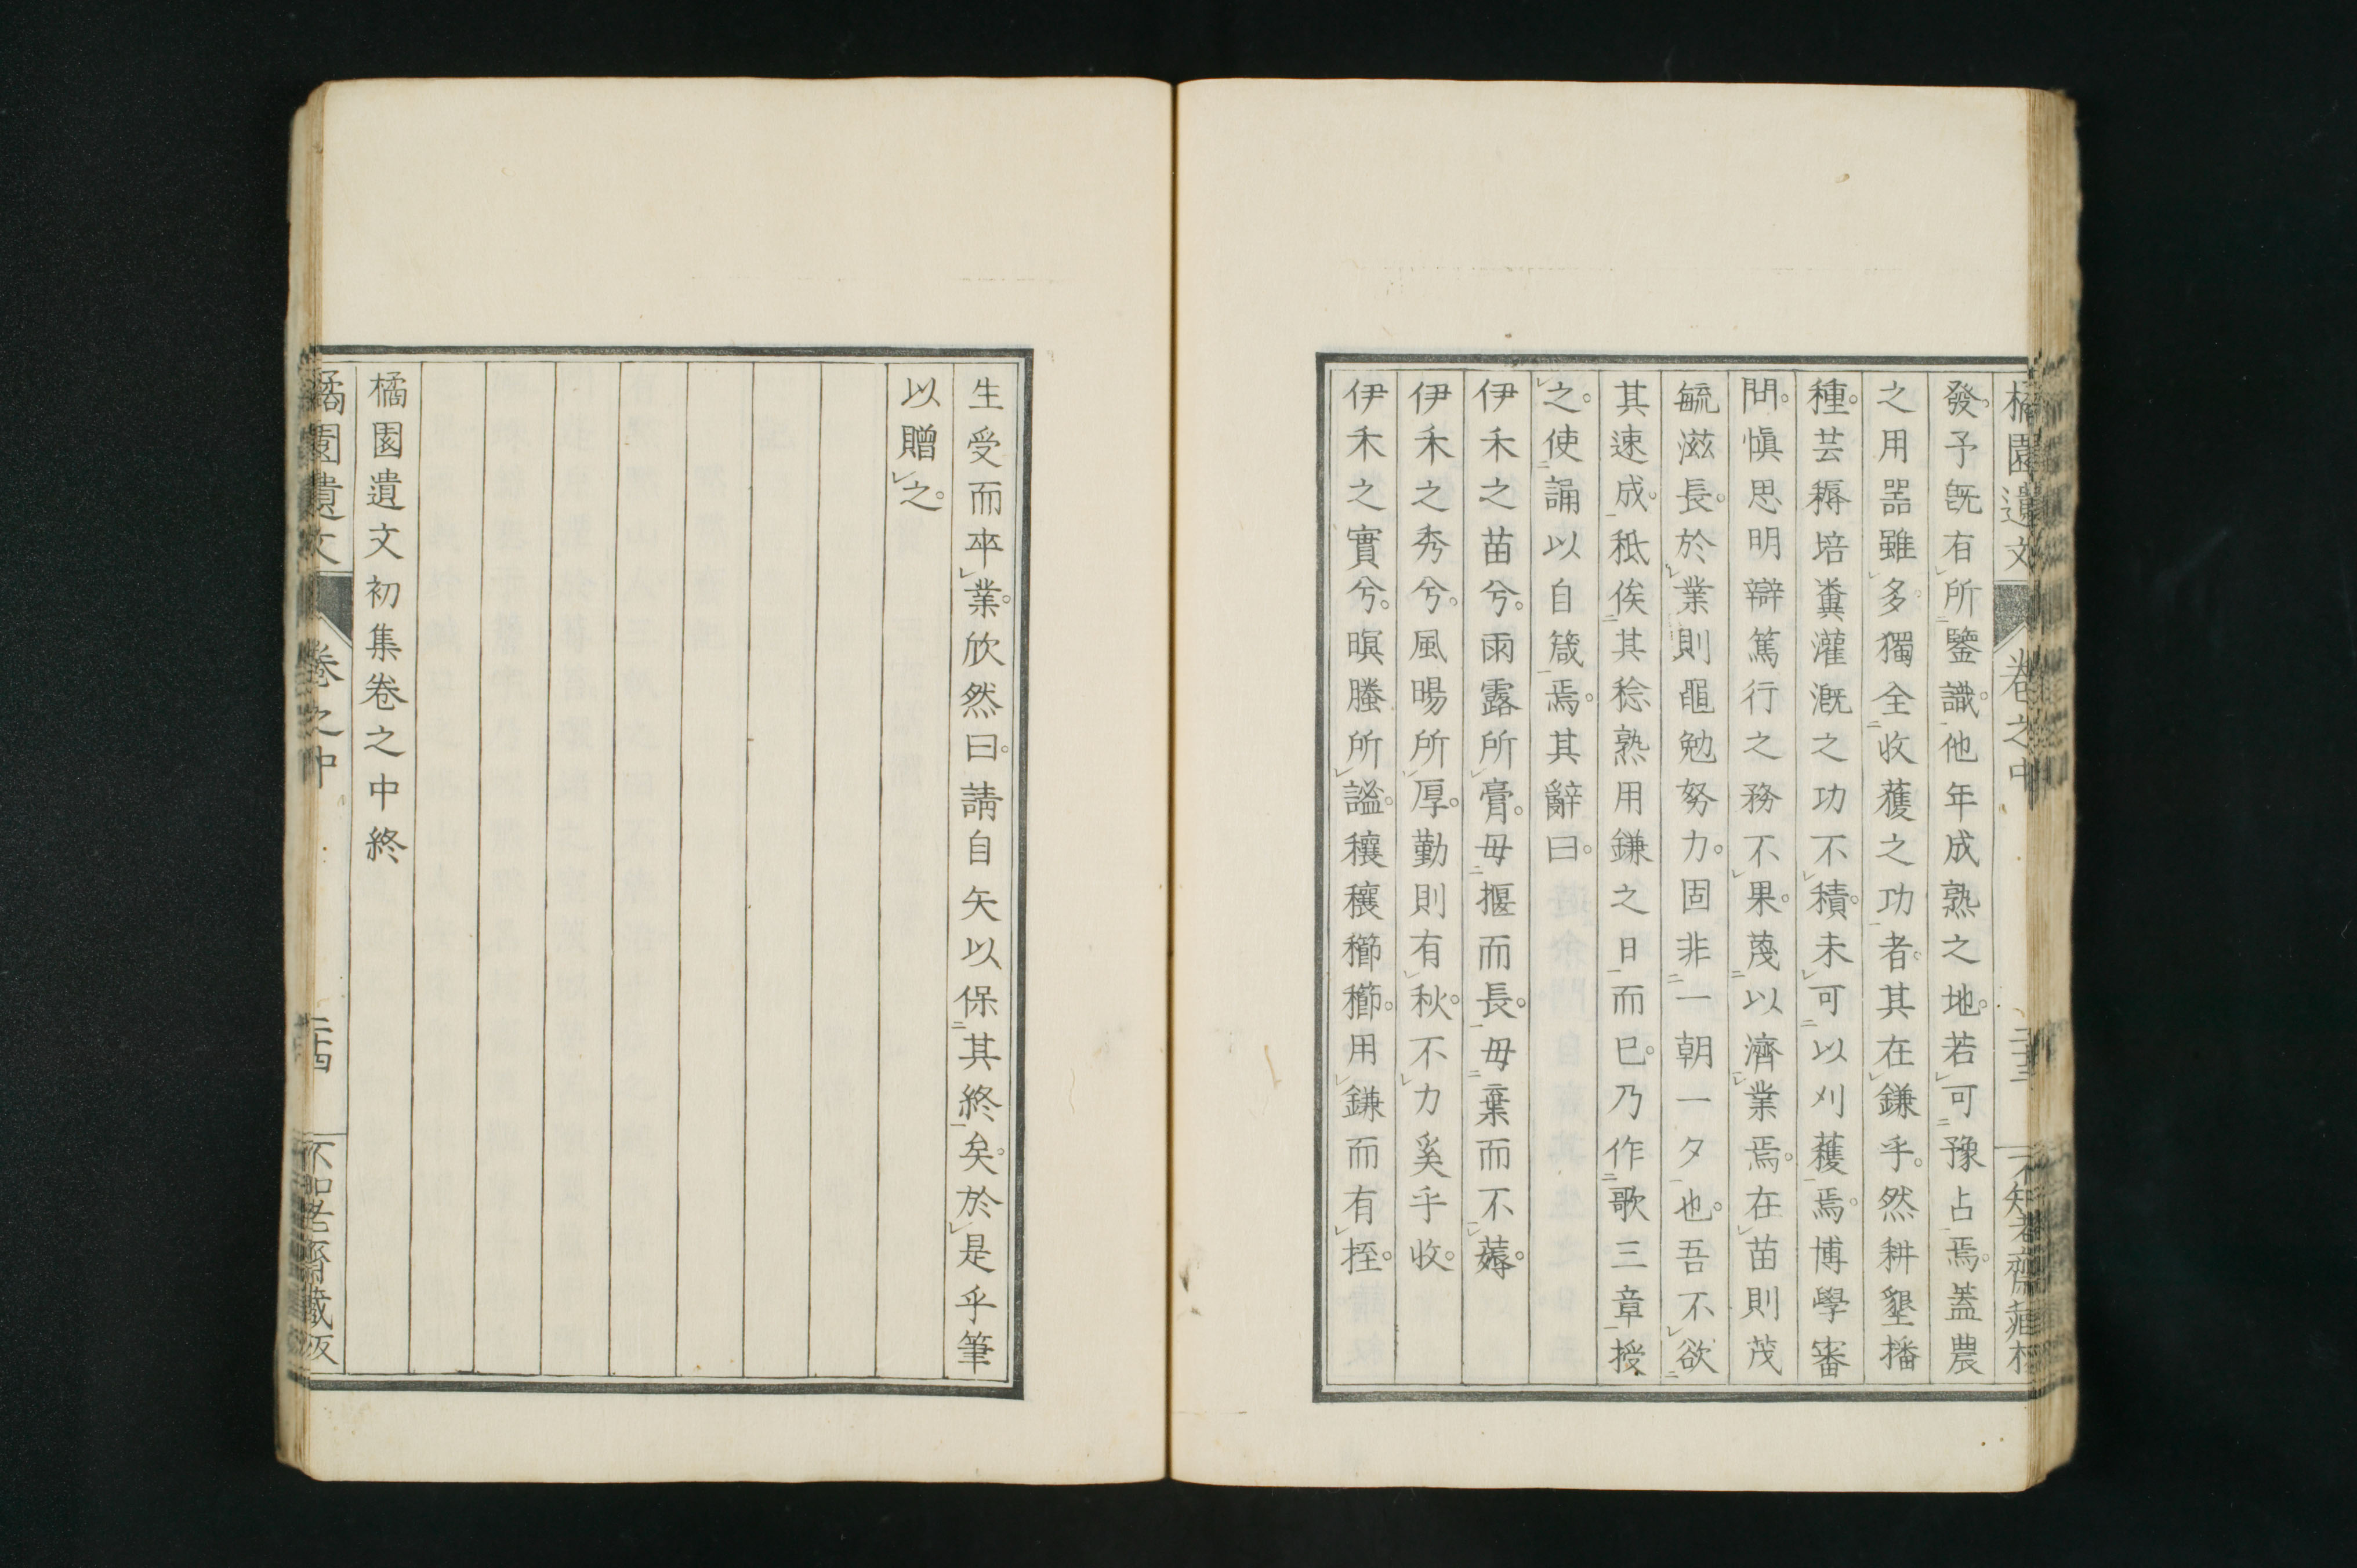 橘園遺文 卷之中 二十三 不知老齋藏板
發予旣有所鑒識他年成熟之地若可豫占焉蓋農
之用噐雖多獨全收穫之功者其在鎌乎然耕墾播
種芸耨培糞灌漑之功不積未可以刈穫焉博學審
問愼思明辯篤行之務不果蔑以濟業焉在苗則茂
毓滋長於業則黽勉努力固非一朝一夕也吾不欲
其速成秪俟其稔熟用鎌之日而已乃作歌三章授
之使誦以自箴焉其辭曰
伊禾之苗兮雨露所膏毋揠而長毋棄而不薅
伊禾之秀兮風暘所厚勤則有秋不力奚乎收
伊禾之實兮暝螣所謐穰穰櫛櫛用鎌而有挃
生受而卒業欣然曰請自矢以保其終矣於是乎筆
以贈之
橘園遺文初集卷之中終
橘園遺文 卷之中 二十四 不知老齋藏板